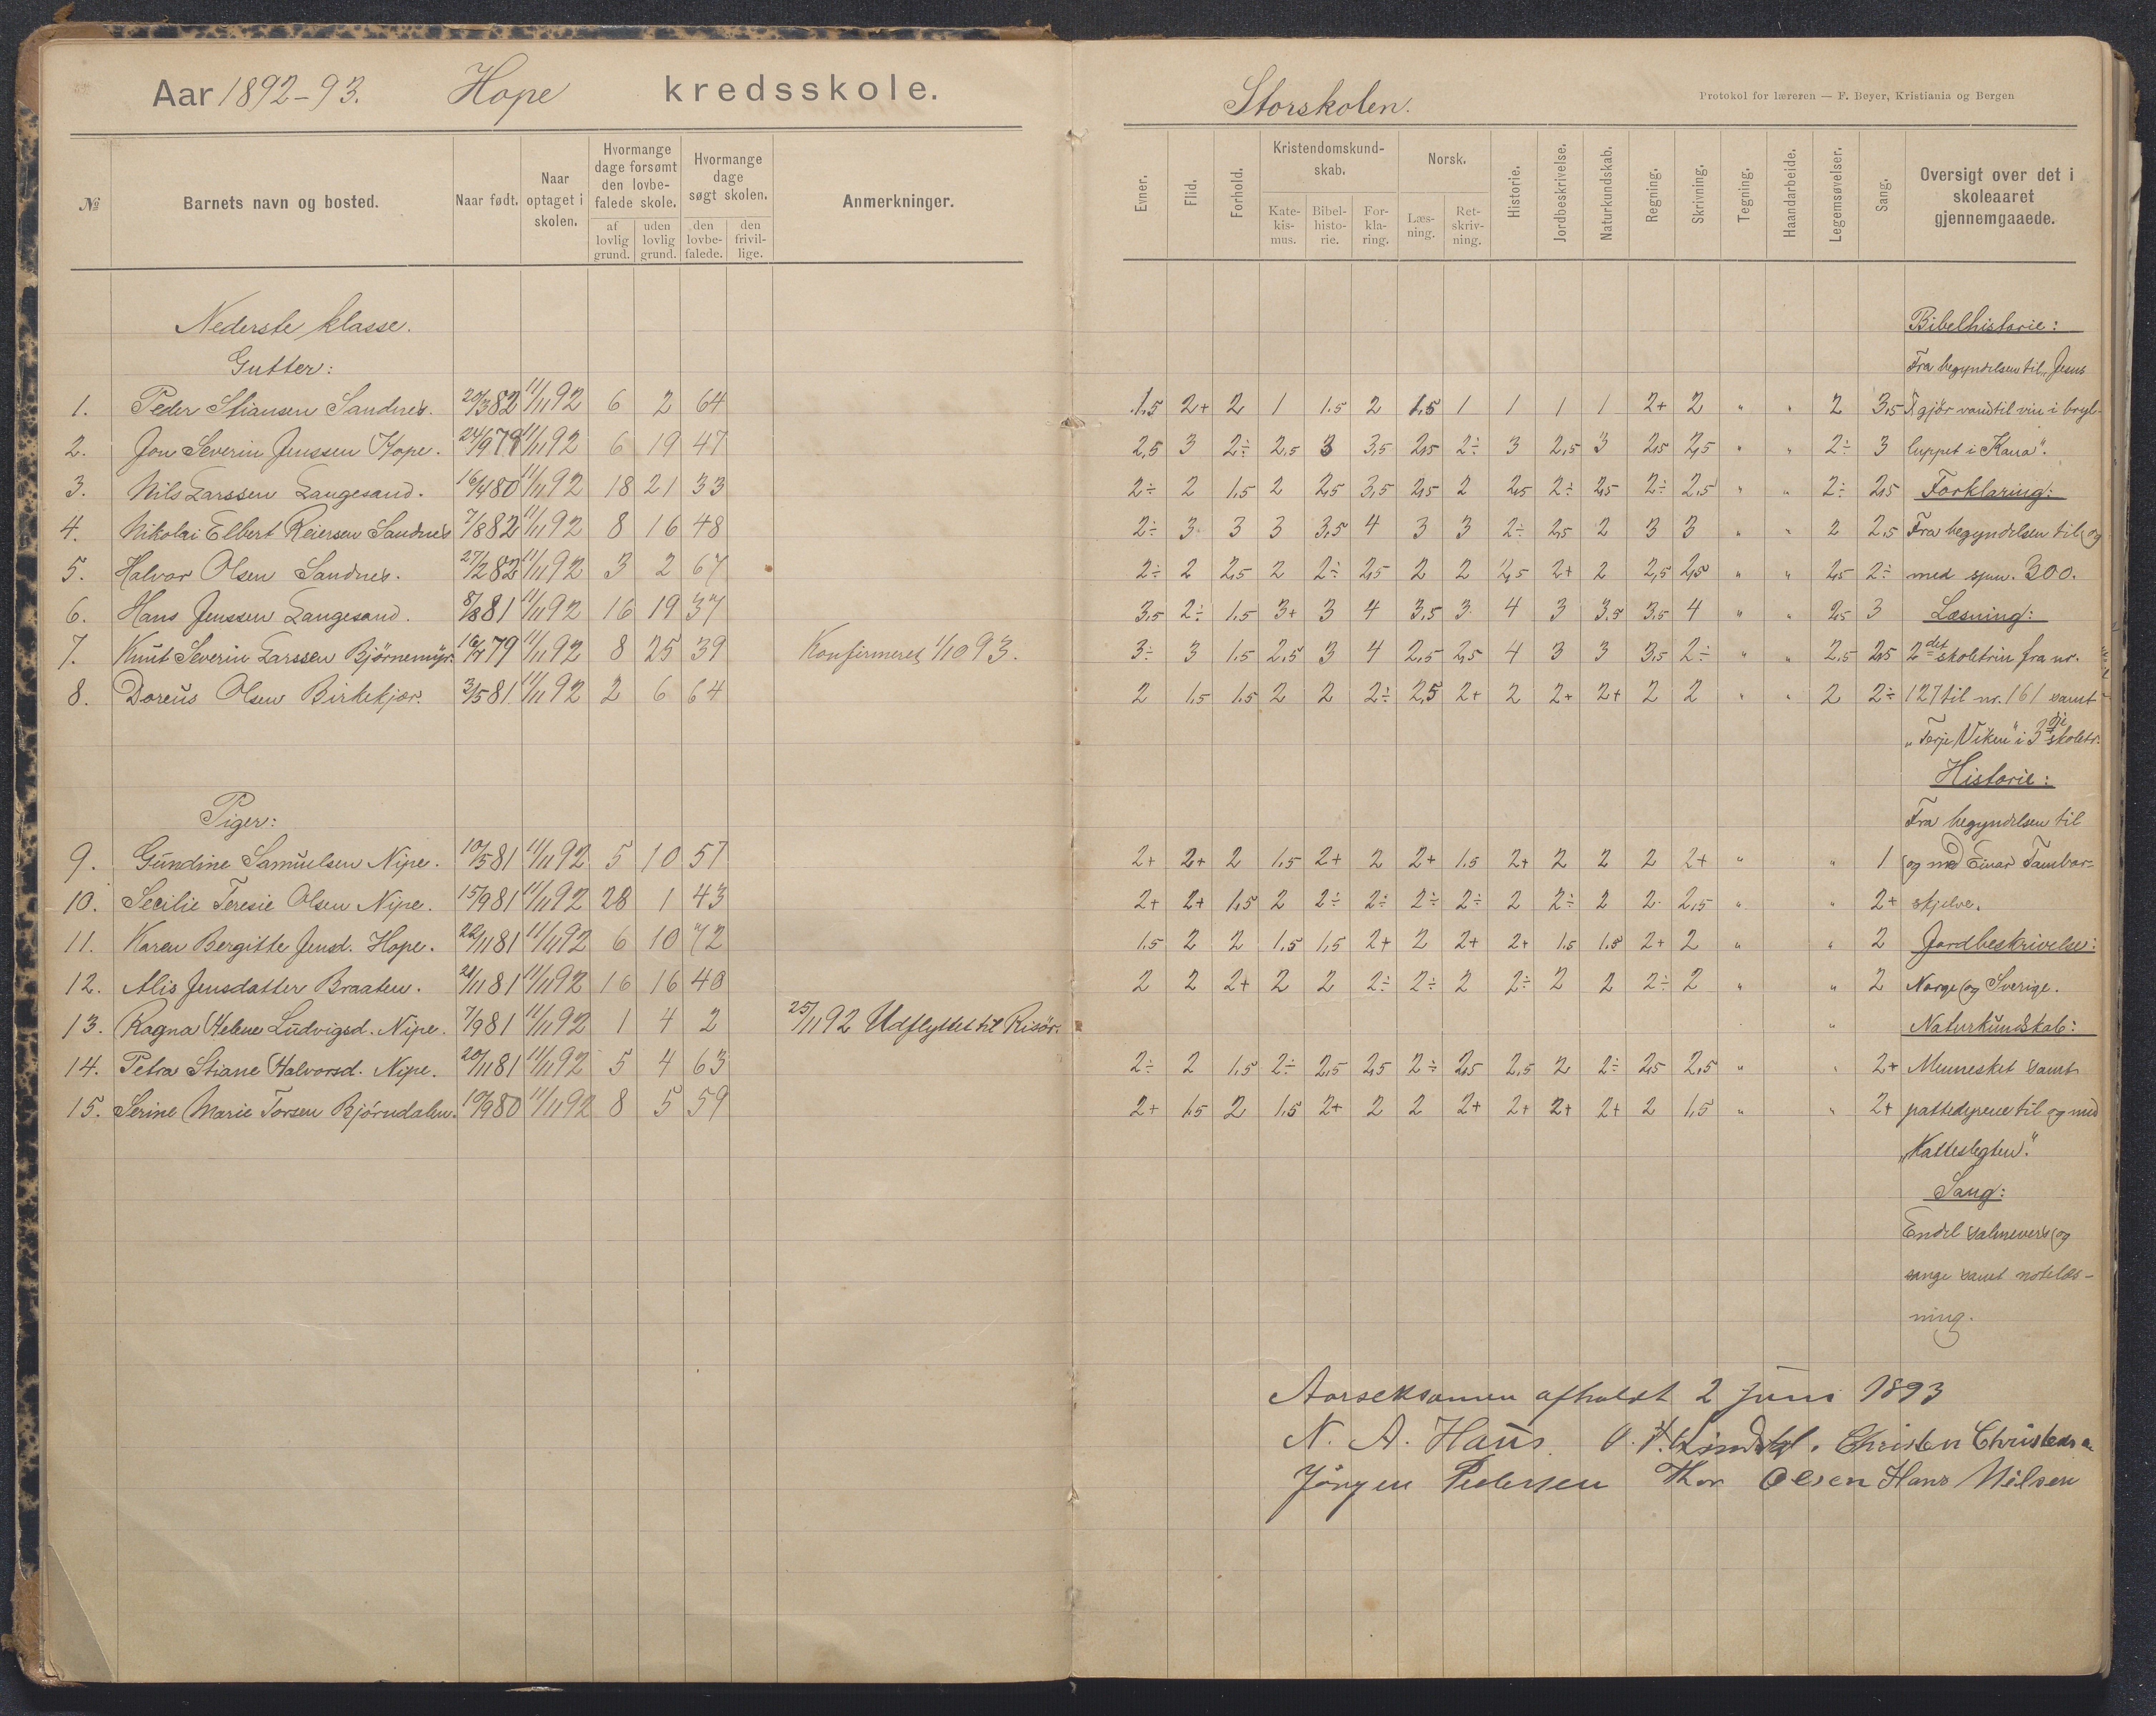 Aar 1892-93. Hope kredsskole.
Storskolen.
Protokol for læreren — F. Beyer, Kristiania og Bergen
№ Barnets navn og bosted. Naar født. Naar optaget i skolen. Hvormange dage forsømt den lovbefalede skole. af lovlig grund. uden lovlig grund. Hvormange dage søgt skolen. den lovbefalede. den frivillige. Anmerkninger.
Evner. Flid. Forhold. Kristendomskundskab. Katekismus. Bibelhistorie. Forklaring. Norsk. Læsning. Retskrivning. Historie. Jordbeskrivelse. Naturkundskab. Regning. Skrivning. Tegning. Haandarbeide. Legemsøvelser. Sang. Oversigt over det i skoleaaret gjennemgaaede.
Nederste klasse.
Gutter:
1. Peder Stiansen Sandnes. 20/3 82 11/11 92 6 2 64
2. Jon Severin Jenssen Hope. 24/9 79 11/11 92 6 19 47
3. Nils Larssen Langesand. 16/4 80 11/11 92 18 21 33
4. Nikolai Elbert Reiersen Sandnes 7/8 82 11/11 92 8 16 48
5. Halvor Olsen Sandnes. 27/2 82 11/11 92 3 2 67
6. Hans Jenssen Langesand. 8/8 81 11/11 92 16 19 37
7. Knut Severin Larssen Bjørnemyr. 16/7 79 11/11 92 8 25 39 Konfirmeret 1/10 93.
8. Doreus Olsen Birkekjær. 3/5 81 11/11 92 2 6 64
Piger:
9. Gundine Samuelsen Nipe. 10/5 81 11/11 92 5 10 57
10. Secilie Teresie Olsen Nipe. 15/9 81 11/11 92 28 1 43
11. Karen Bergitte Jensd. Hope. 22/11 81 11/11 92 6 10 72
12. Alis Jensdatter Braaten. 21/11 81 11/11 92 16 16 40
13. Ragna Helene Ludvigsd. Nipe. 7/9 81 11/11 92 1 4 2 25/11 92 Udflyttet til Risör.
14. Petra Stiane Halvorsd. Nipe. 20/11 81 11/11 92 5 4 63
15. Serine Marie Torsen Bjørndalen. 10/9 80 11/11 92 8 5 59
1.5 2+ 2 1 1.5 2 1.5 1 1 1 1 2+ 2 " " 2 3,5
2,5 3 2÷ 2,5 3 3,5 2,5 2÷ 3 2,5 3 2,5 2,5 " " 2÷ 3
2÷ 2 1.5 2 2,5 3,5 2,5 2 2,5 2÷ 2,5 2÷ 2,5 " " 2÷ 2,5
2÷ 3 3 3 3,5 4 3 3 2÷ 2,5 2 3 3 " " 2 2,5
2÷ 2 2,5 2 2÷ 2,5 2 2 2,5 2+ 2 2,5 2,5 " " 2,5 2÷
3,5 2÷ 1.5 3+ 3 4 3,5 3 4 3 3,5 3,5 4 " " 2,5 3
3÷ 3 1.5 2,5 3 4 2,5 2,5 4 3 3 3,5 2÷ " " 2,5 2,5
2 1.5 1.5 2 2 2÷ 2,5 2+ 2 2+ 2+ 2 2 " " 2 2÷
2+ 2+ 2 1.5 2+ 2 2+ 1.5 2+ 2 2 2 2+ " " 1
2+ 2+ 1,5 2 2÷ 2÷ 2÷ 2÷ 2 2÷ 2 2 2,5 " " 2+
1.5 2 2 1.5 1,5 2+ 2 2+ 2+ 1.5 1.5 2+ 2 " " 2
2 2 2+ 2 2 2÷ 2÷ 2 2÷ 2 2 2÷ 2 " " 2
"
2÷ 2 1.5 2÷ 2,5 2,5 2÷ 2,5 2,5 2 2÷ 2,5 2,5 " " 2+
2+ 1.5 2 1.5 2+ 2 2 2+ 2+ 2+ 2+ 2 1.5 " " 2+
Bibelhistorie:
Fra begyndelsen til "Jesus
gjör vand til vin i bryl-
luppet i Kana".
Forklaring:
Fra begyndelsen til og
med spm. 300.
Læsning:
2det skoletrin fra nr.
127 til nr. 161 samt
"Terje Viken" i 3dje skoletr.
Historie:
Fra begyndelsen til
og med Einar Tambar-
skjelve.
Jordbeskrivelse:
Norge og Sverige.
Naturkundskab:
Mennesket samt
pattedyrene til og med
"Katteslegten".
Sang:
Endel salmevers og
sange samt notelæs-
ning.
Aarseksamen afholdt 2 Juni 1893
N. A. Hans. Lindstøl. Christen Christens
Jörgen Pedersen Thor Olsen Hans Nilsen